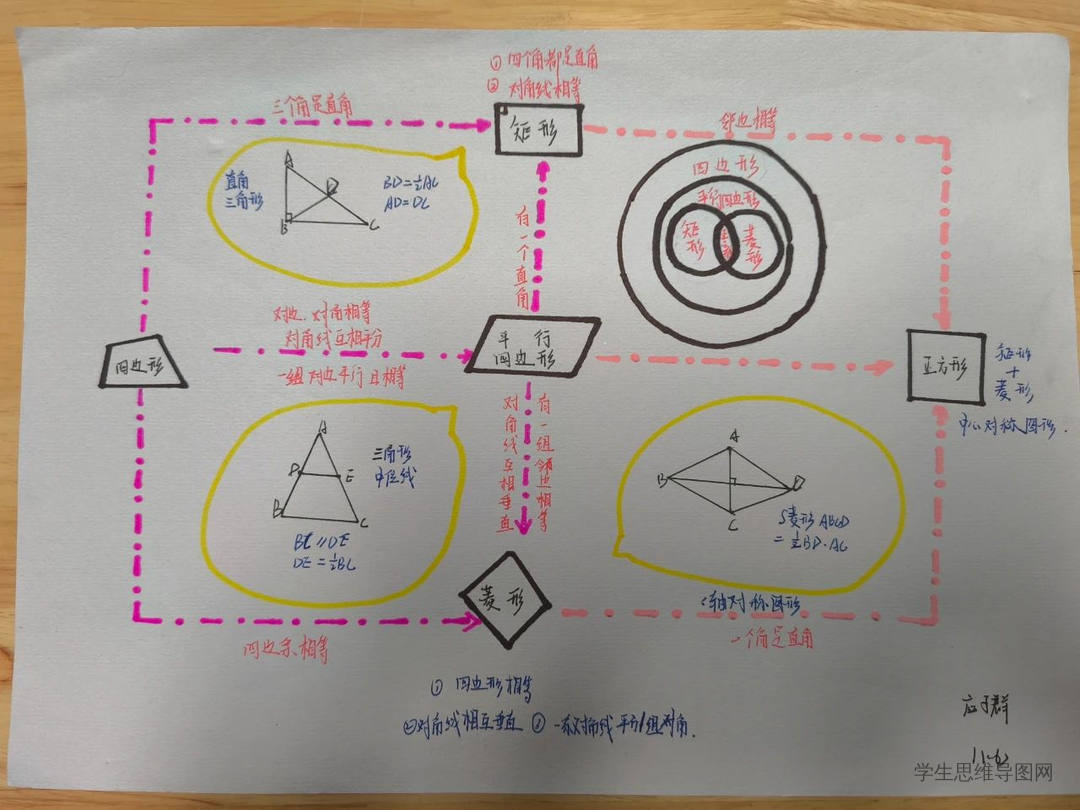 ① 四个角都是直角
② 对角线相等
三个角是直角
矩形
邻边相等
直角
三角形
A
D
B
C
BD=½AC
AD=DC
有一个直角
四边形
平行四边形
矩形
菱形
对边、对角相等
对角线互相平分
一组对边平行且相等
四边形
平行
四边形
正方形
矩形
+
菱形
中心对称图形.
对角线互相垂直
有一组邻边相等
A
D
E
B
C
三角形
中位线
BC//DE
DE=½BC
A
B
D
C
S菱形ABCD
=½BD·AC
轴对称图形
菱形
四边条相等
一个角是直角
① 四边形相等
②对角线相互垂直
一条对角线平分1组对角.
应子群
学生思维导图网